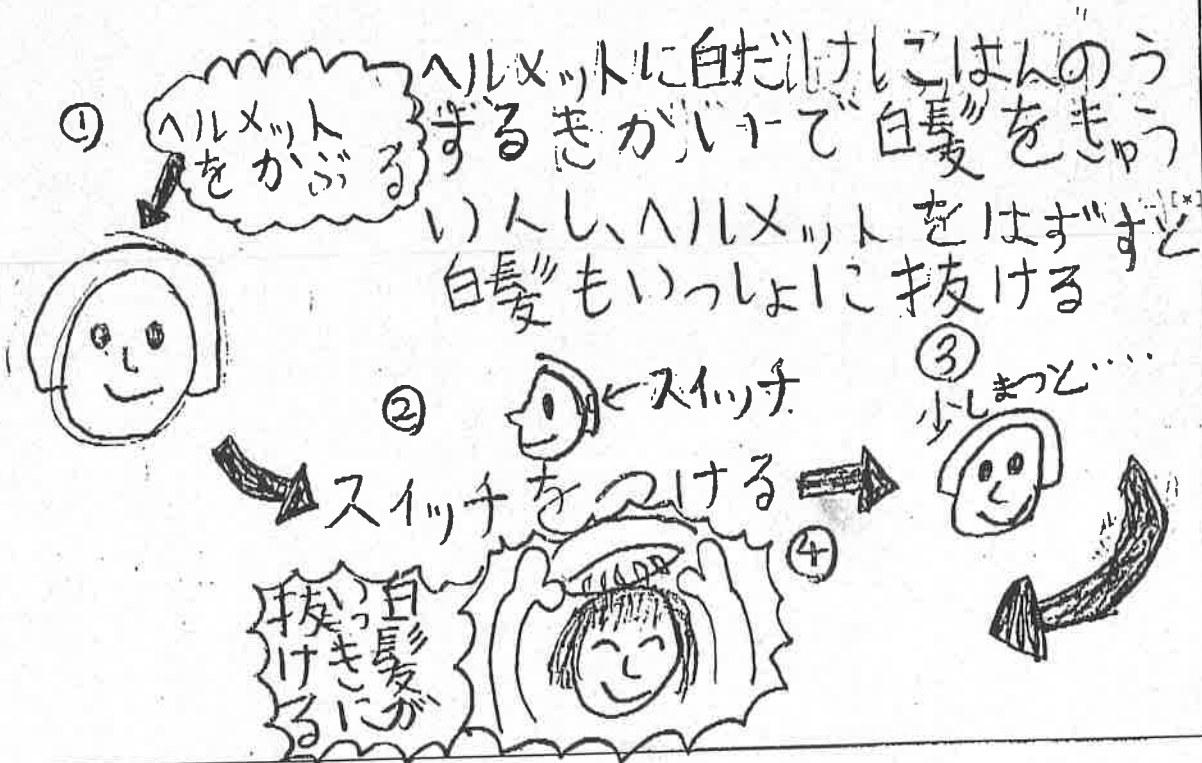 ①
ヘルメット
をかぶる
ヘルメットに白だけにはんのう
するきかい で白髪をきゅう
いんし、ヘルメットをはずすと
白髪もいっしょに抜ける
②
←スイッチ
スイッチをつける
③
少しまつと‥‥
④
白髪が
いっきに
抜ける